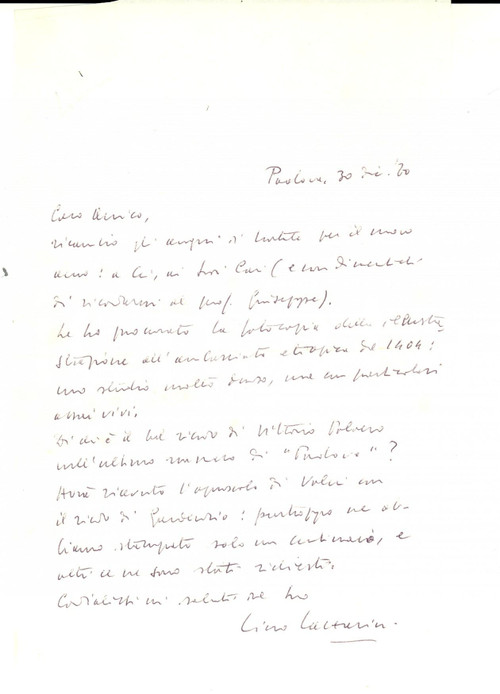 Padova, 30 dic. '80
Caro Amico,
ricambio gli auguri di Natale per il nuovo
anno: a Lei, ai Suoi Cari (e non dimentichi
di ricordarmi al prof. Giuseppe).
Le ho procurato la fotocopia della
all'ambasciata etiopica del 1404:
uno studio molto denso, ma con particolari
assai vivi.
Di chi è il bel ricordo di Vittorio
nell'ultimo numero di "Padova"?
Avrà ricevuto l'opuscolo di con
il ricordo di : purtroppo ne ab-
biamo stampato solo un centinaio, e
altri ce ne sono stati richiesti.
Cordialissimi saluti dal Suo
Lino Lazzarini.